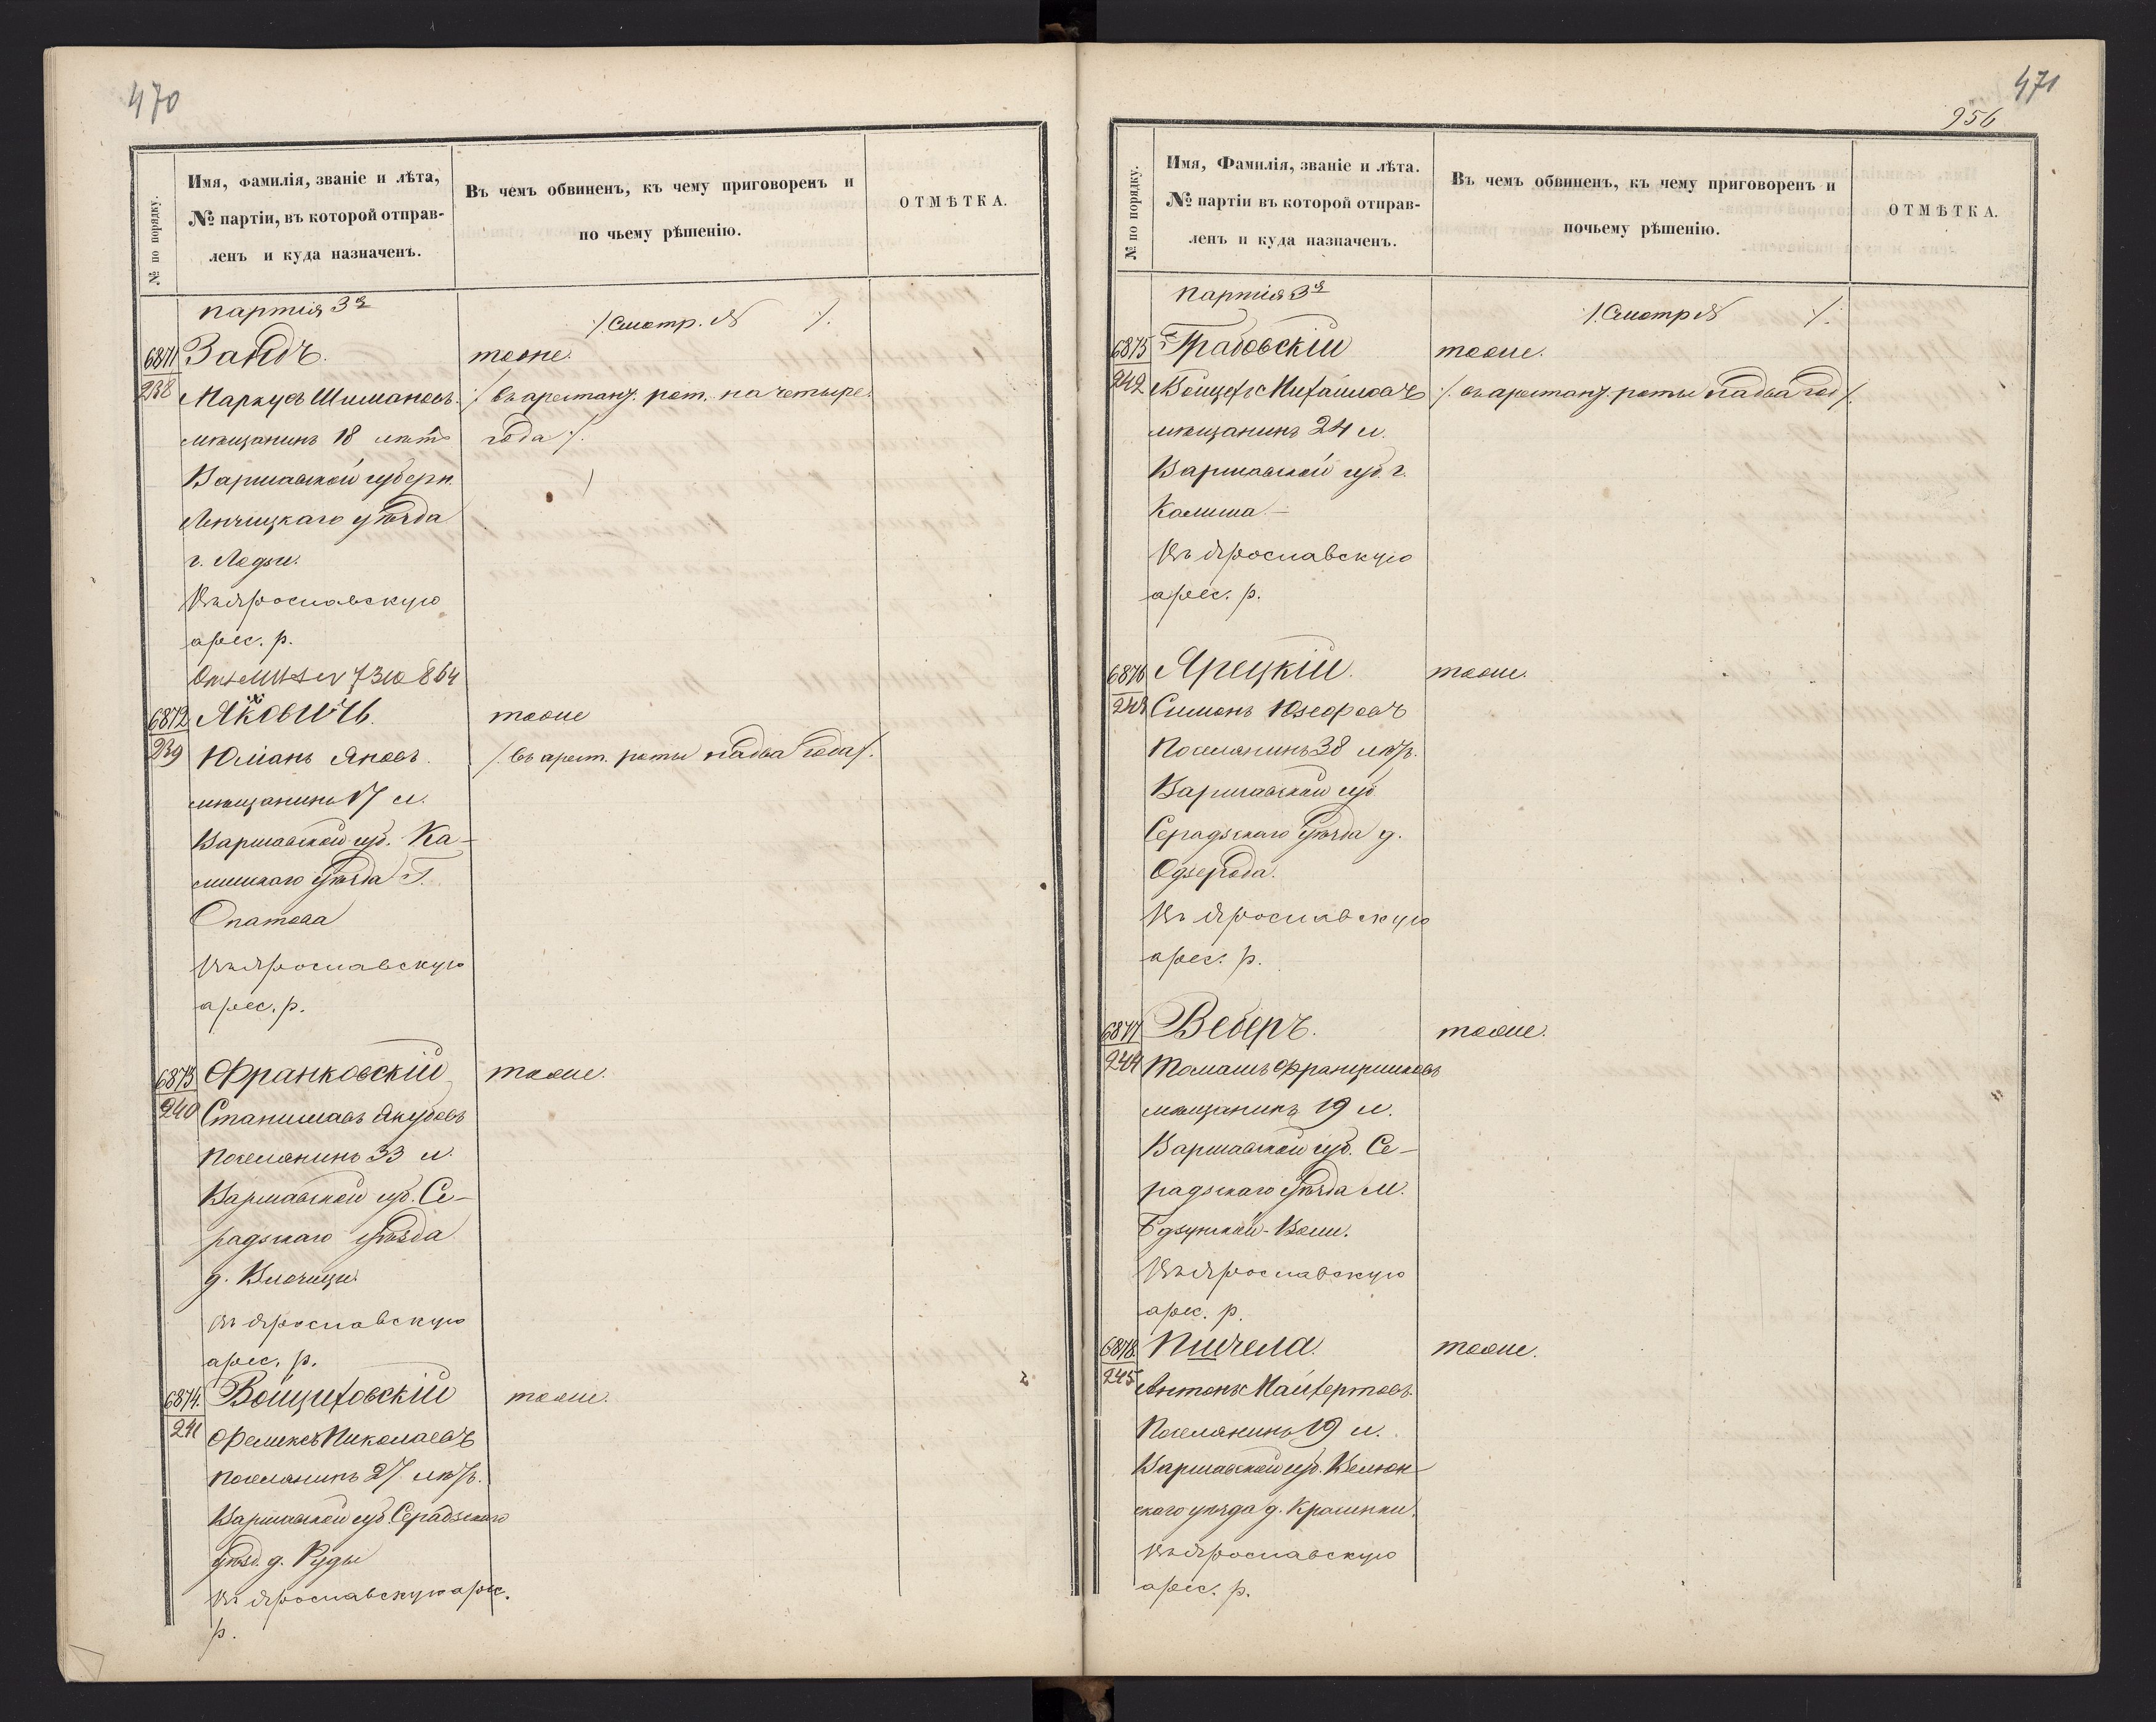 470
№ по порядку.
Имя, фамилія, званіе и лѣта,
№ партіи, въ которой отправ-
ленъ и куда назначенъ.
Въ чемъ обвиненъ, къ чему приговоренъ и
по чьему рѣшенію.
ОТМѢТКА.
партія 3я
/. Смотр. № /.
6871
238
Зандъ.
тоже.
Маркусъ Шимановъ.
/ въ арестанц. рот. на четыре
мѣщанинъ 18 лѣтъ
года /.
Варшавской губерн.
Ленчицкаго уѣзда
г. Лодзи.
Въ Ярославскую
арес. р.
6872
239
Яковичъ.
тоже
Юліанъ Яновъ.
/. въ арест. роты на два года /.
мѣщанинъ 17 л.
Варшавской губ. Ка-
лишскаго уѣзда Г.
Опатова
Въ Ярославскую
арес. р.
6873
240
Франковскій
тоже.
Станиславъ Якубовъ
Поселянинъ 33 л.
Варшавской губ. Се-
радзскаго уѣзда
д. Влочици.
Въ Ярославскую
арес. р.
6874.
241
Войцеховскій
тоже.
Феликсъ Николаевъ
Поселянинъ 27 лѣтъ.
Варшавской губ. Серадзскаго
уѣзд. д. Руды
Въ Ярославскую арес.
р.
471
956
№ по порядку.
Имя, Фамилія, званіе и лѣта.
№ партіи въ которой отправ-
ленъ и куда назначенъ.
Въ чемъ обвиненъ, къ чему приговоренъ и
почьему рѣшенію.
ОТМѢТКА.
партія 3я
/. Смотр № /.
6875
242
Грабовскій
тоже.
Войцехъ Михайловъ
/. въ арестанц. роты на два год /.
мѣщанинъ 24 л.
Варшавской губ. г.
Калиша.
Въ Ярославскую
арес. р.
6876
243
Ярецкій.
тоже.
Симонъ Юзефовъ
Поселянинъ 38 лѣтъ.
Варшавской губ.
Серадзскаго уѣзда д.
Одзерода.
Въ Ярославскую
арес. р.
6877
244
Веберъ.
тоже.
Томашъ Францишковъ
мѣщанинъ 19 л.
Варшавской губ. Се-
радзскаго уѣзда м.
Здзунской-Воли.
Въ Ярославскую
арес. р.
6878.
245
Пшчела.
тоже.
Антонъ
Поселянинъ 19 л.
Варшавской губ. Велюн-
скаго уѣзда д.
Въ Ярославскую
арес. р.